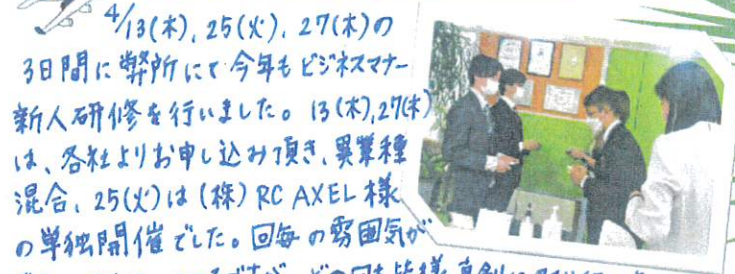 4/13(木), 25(火), 27(木)の
3日間に弊所にて今年もビジネスマナー
新人研修を行いました。13(木),27(木)
は、各社よりお申し込み頂き、異業種
混合、25(火)は(株)RC AXEL様
の単独開催でした。回毎の雰囲気が